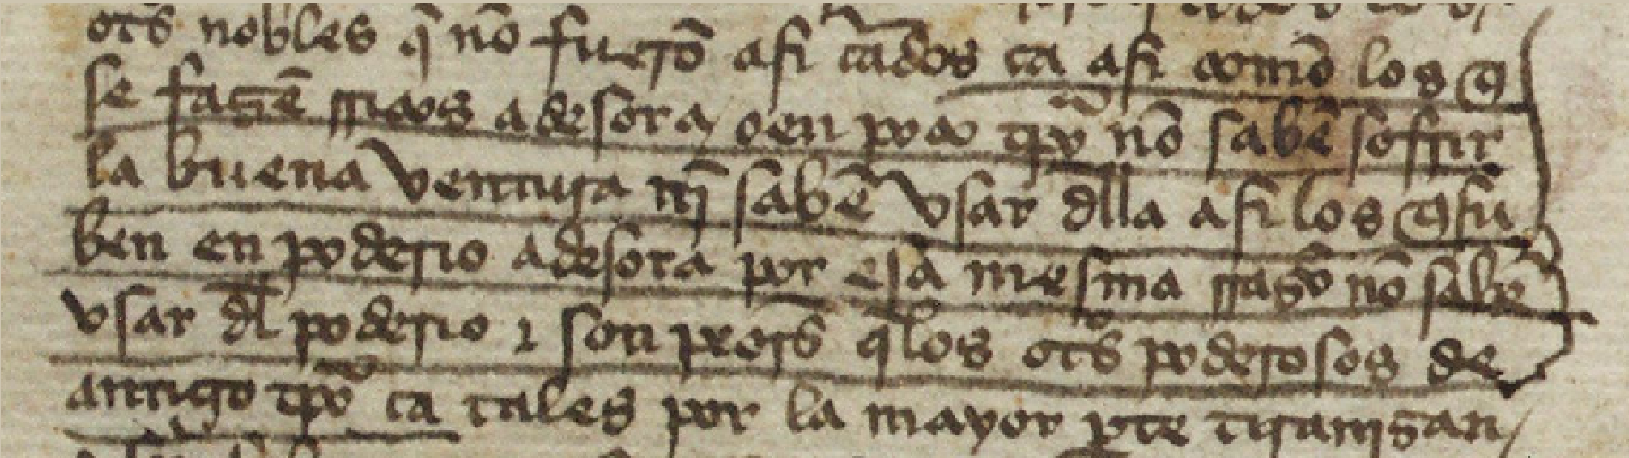 otͬs nobles q̃ nõ fuerõ asi c̃ados ca asi com̃o los q̃
se fazẽ rricos adesora o en poco tp̃o nõ sabẽ sofrir
la buena ventura nĩ sabẽ vsar dlla asi los q̃ su
ben en poderio adesora por esa mesma rrazõ nõ sabẽ
vsar dl poderio ⁊ son peorẽs q̃ los otͦs poderosos de
antigo tp̃o ca tales por la mayor ꝑte tiranizan